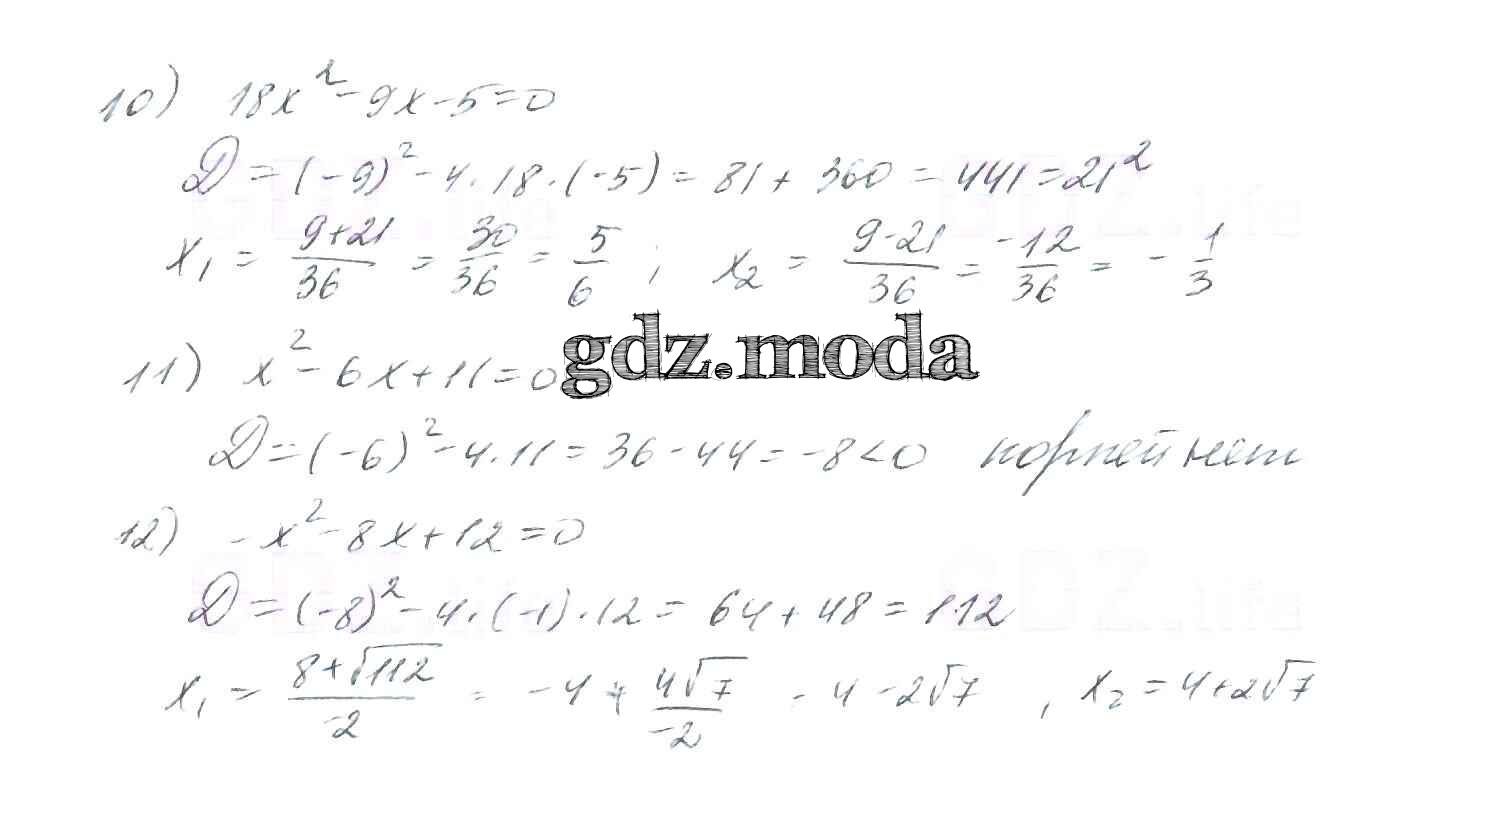 10) 18x² - 9x - 5 = 0
D = (-9)² - 4 · 18 · (-5) = 81 + 360 = 441 = 21²
x₁ = (9+21)/36 = 30/36 = 5/6 ; x₂ = (9-21)/36 = -12/36 = -1/3
gdz.moda
11) x² - 6x + 11 = 0
D = (-6)² - 4 · 11 = 36 - 44 = -8 < 0 корней нет
12) -x² - 8x + 12 = 0
D = (-8)² - 4 · (-1) · 12 = 64 + 48 = 112
x₁ = (8+√112)/-2 = -4 + 4√7/-2 - 4 - 2√7 , x₂ = 4 + 2√7